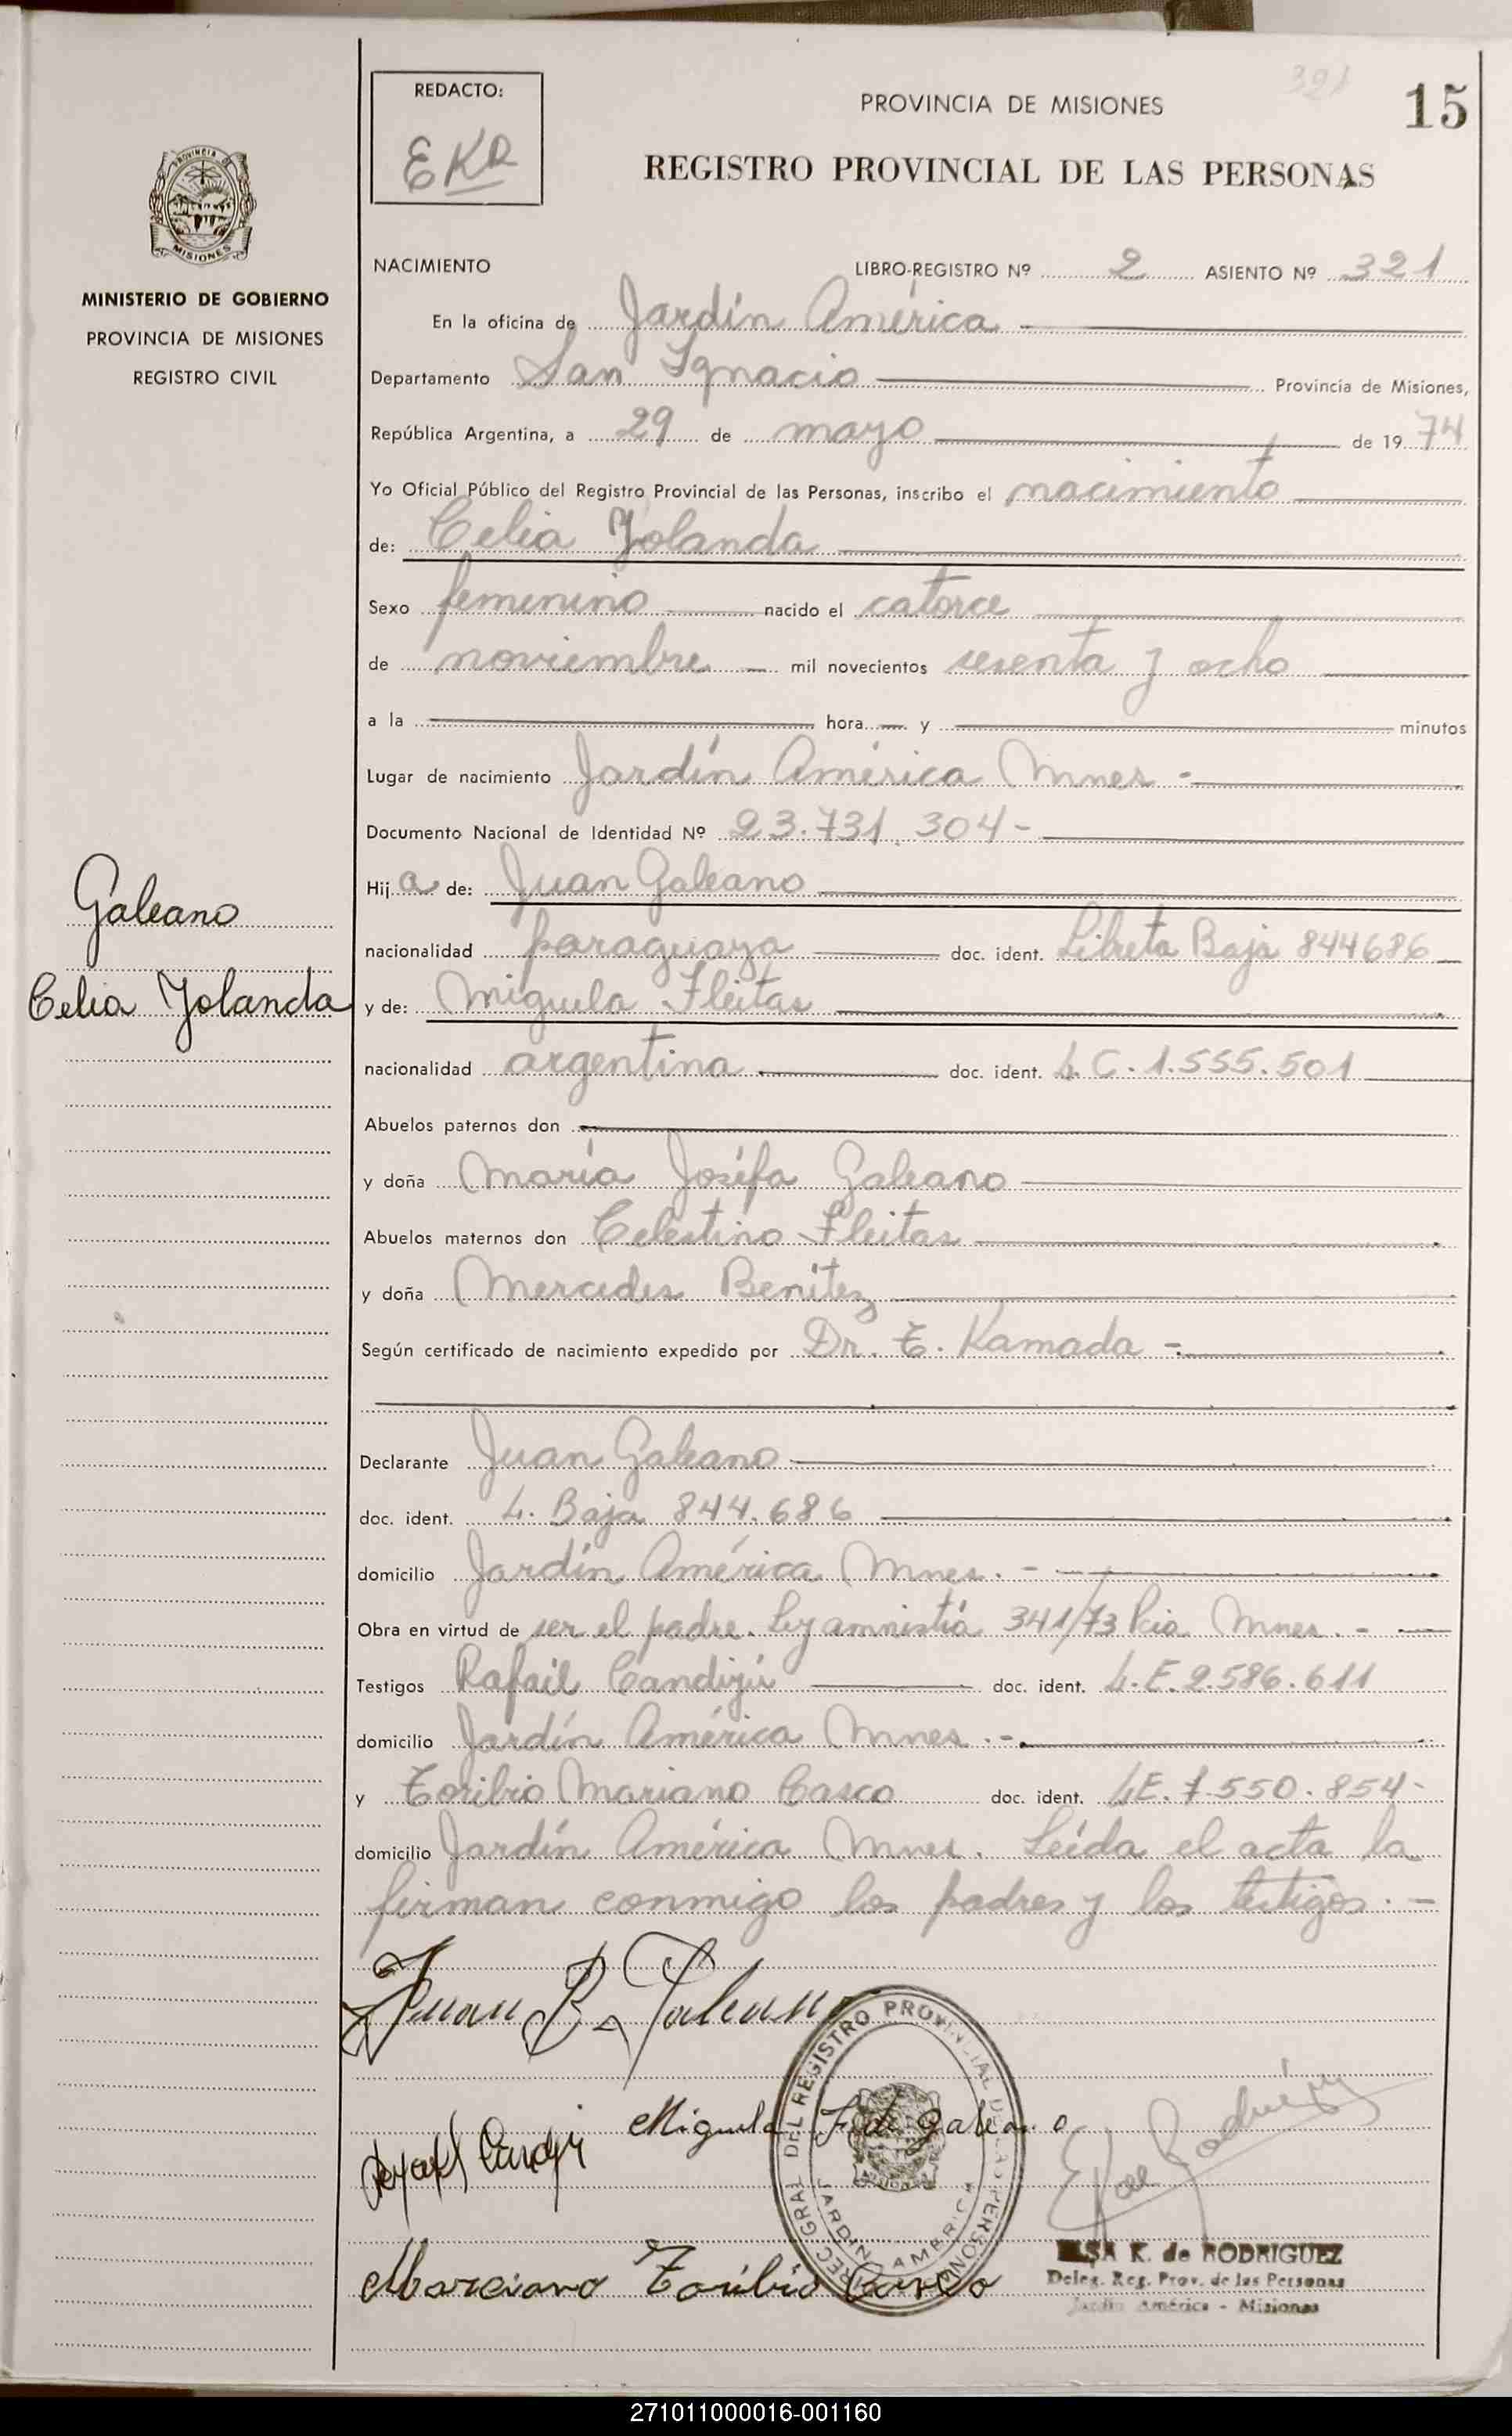 321
15
REDACTO:
EKR
PROVINCIA DE MISIONES
REGISTRO PROVINCIAL DE LAS PERSONAS
PROVINCIA DE
MISIONES
MINISTERIO DE GOBIERNO
PROVINCIA DE MISIONES
REGISTRO CIVIL
NACIMIENTO LIBRO-REGISTRO Nº 2 ASIENTO Nº 321
En la oficina de Jardín América
Departamento San Ignacio Provincia de Misiones,
República Argentina, a 29 de mayo de 1974
Yo Oficial Público del Registro Provincial de las Personas, inscribo el nacimiento
de: Celia Yolanda
Sexo femenino nacido el catorce
de noviembre mil novecientos sesenta y ocho
a la hora y minutos
Lugar de nacimiento Jardín América Mnes -
Documento Nacional de Identidad Nº 23.731.304-
Galeano
Celia Yolanda
Hija de: Juan Galeano
nacionalidad paraguaya doc. ident. Libreta Baja 844686
y de: Miguela Fleitas
nacionalidad argentina doc. ident. L.C. 1.555.501
Abuelos paternos don
y doña María Joséfa Galeano
Abuelos maternos don Celestino Fleitas
y doña Mercedes Benítez
Según certificado de nacimiento expedido por Dr. E. Kamada -.
Declarante Juan Galeano
doc. ident. L. Baja 844.686
domicilio Jardín América Mnes. -
Obra en virtud de ser el padre. Ley amnistía 341/73 Pcia Mnes. -
Testigos Rafael Candijú doc. ident. L.E. 2.586.611
domicilio Jardín América Mnes. -
y Toribio Mariano Casco doc. ident. LE. 7.550.854-
domicilio Jardín América Mnes. Leída el acta la
firman conmigo los padres y los testigos. -
Juan B. Galeano
Miguela F. de galeano
Marciano Toribio Casco
DEL REGISTRO PROVINCIAL DE LAS PERSONAS
JARDIN AMERICA
MISIONES
ELSA K. de RODRIGUEZ
Deleg. Reg. Prov. de las Personas
Jardín América - Misiones
271011000016-001160